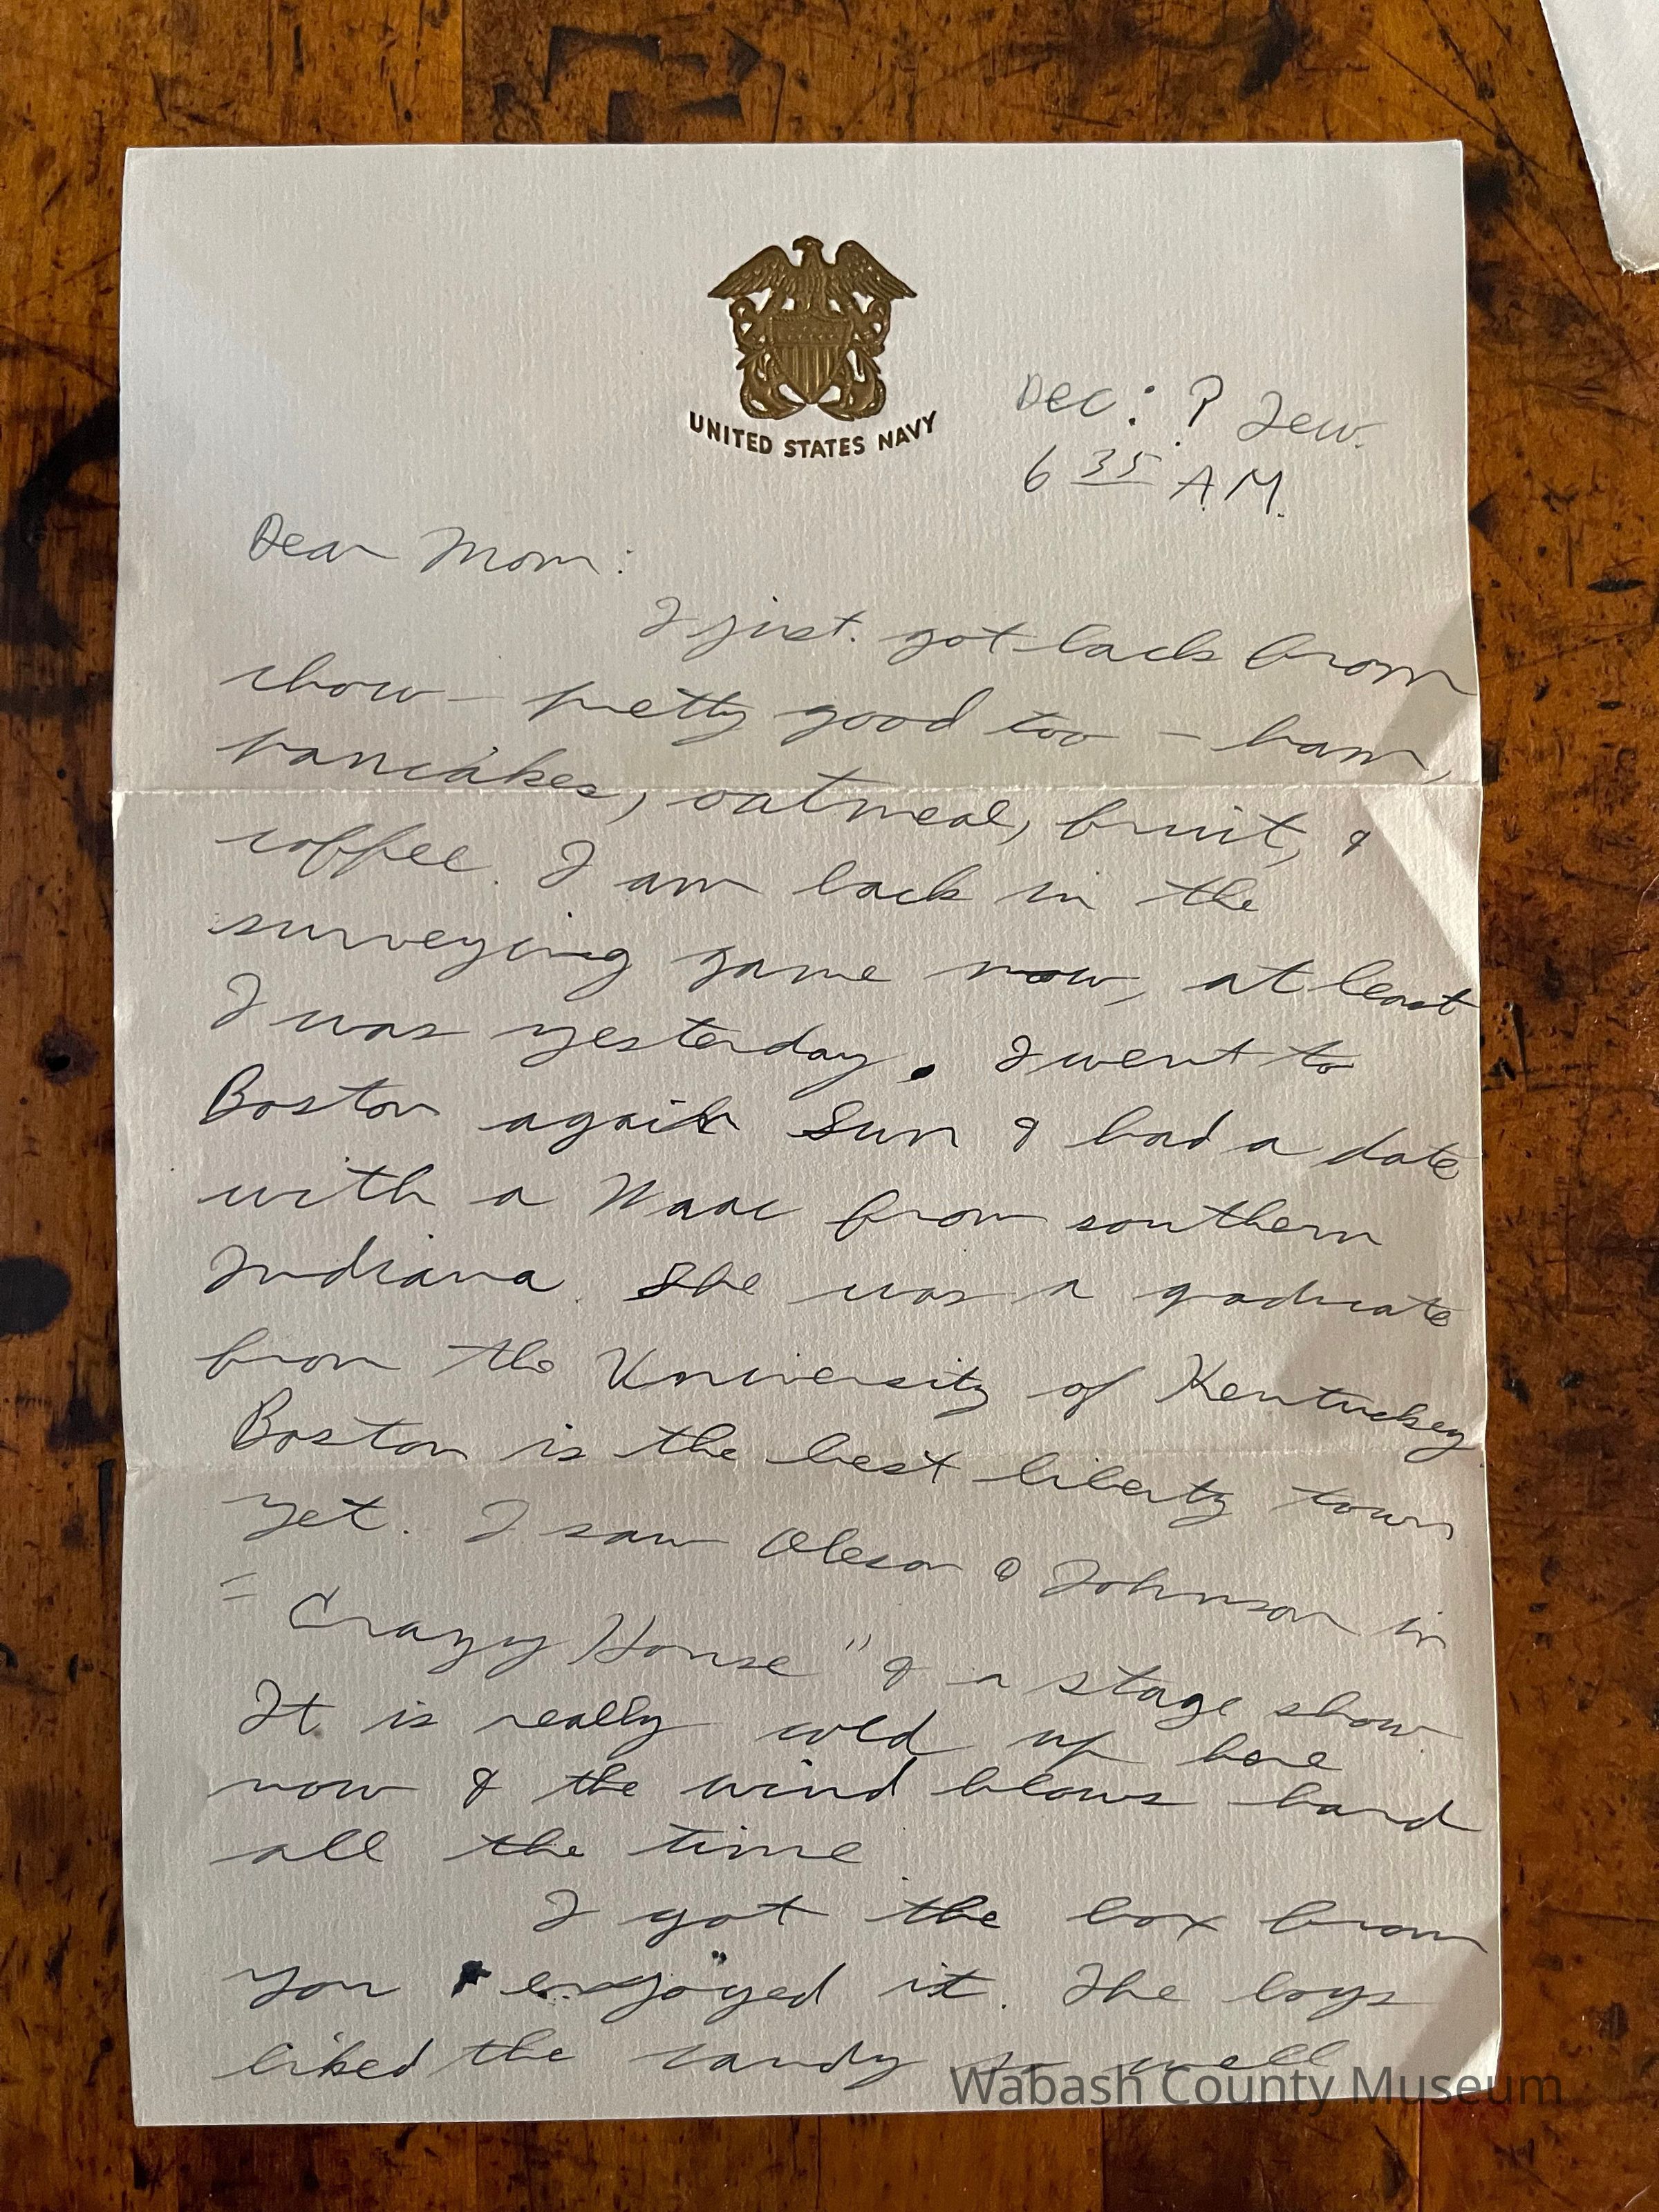 UNITED STATES NAVY
Dec: ? Tew.
6 35 A.M.
Dear Mom:
I just got back from
chow - pretty good too - ham,
pancakes, oatmeal, fruit, &
coffee. I am back in the
surveying game now, at least
I was yesterday. I went to
Boston again Sun & had a date
with a Waac from southern
Indiana. She was a graduate
from the University of Kentucky.
Boston is the best liberty town
yet. I saw Oleson & Johnson in
"Crazy House" & a stage show
It is really cold up here
now & the wind blows hard
all the time.
I got the box from
you & enjoyed it. The boys
liked the candy so well
Wabash County Museum